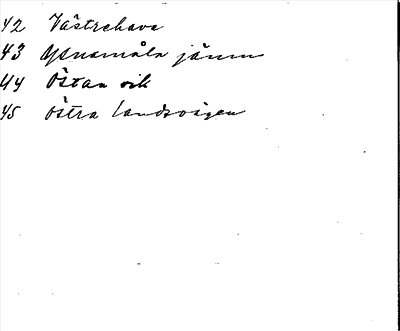 42 Västrehava
43 Ysnamåla jänn
44 Östan vik
45 Östra landsvägen